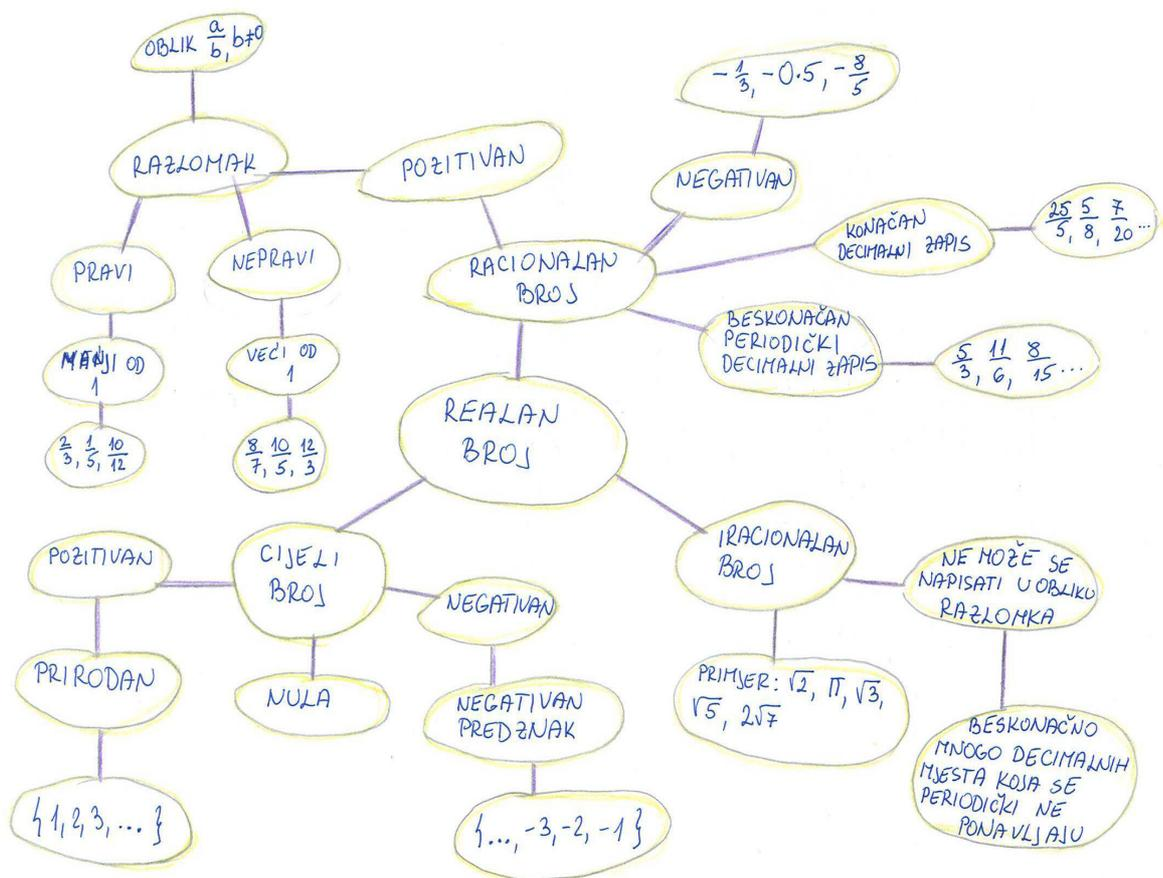 OBLIK a/b, b≠0
RAZLOMAK
POZITIVAN
-1/3, -0.5, -8/5
NEGATIVAN
PRAVI
NEPRAVI
MANJI OD
1
VEĆI OD
1
2/3, 1/5, 10/12
8/7, 10/5, 12/3
RACIONALAN
BROJ
KONAČAN
DECIMALNI ZAPIS
25/5, 5/8, 7/20 ...
BESKONAČAN
PERIODIČKI
DECIMALNI ZAPIS
5/3, 11/6, 8/15 ...
REALAN
BROJ
CIJELI
BROJ
POZITIVAN
PRIRODAN
{1, 2, 3, ... }
NULA
NEGATIVAN
NEGATIVAN
PREDZNAK
{..., -3, -2, -1 }
IRACIONALAN
BROJ
PRIMJER: √2, π, √3,
√5, 2√7
NE MOŽE SE
NAPISATI U OBLIKU
RAZLOMKA
BESKONAČNO
MNOGO DECIMALNIH
MJESTA KOJA SE
PERIODIČKI NE
PONAVLJAJU